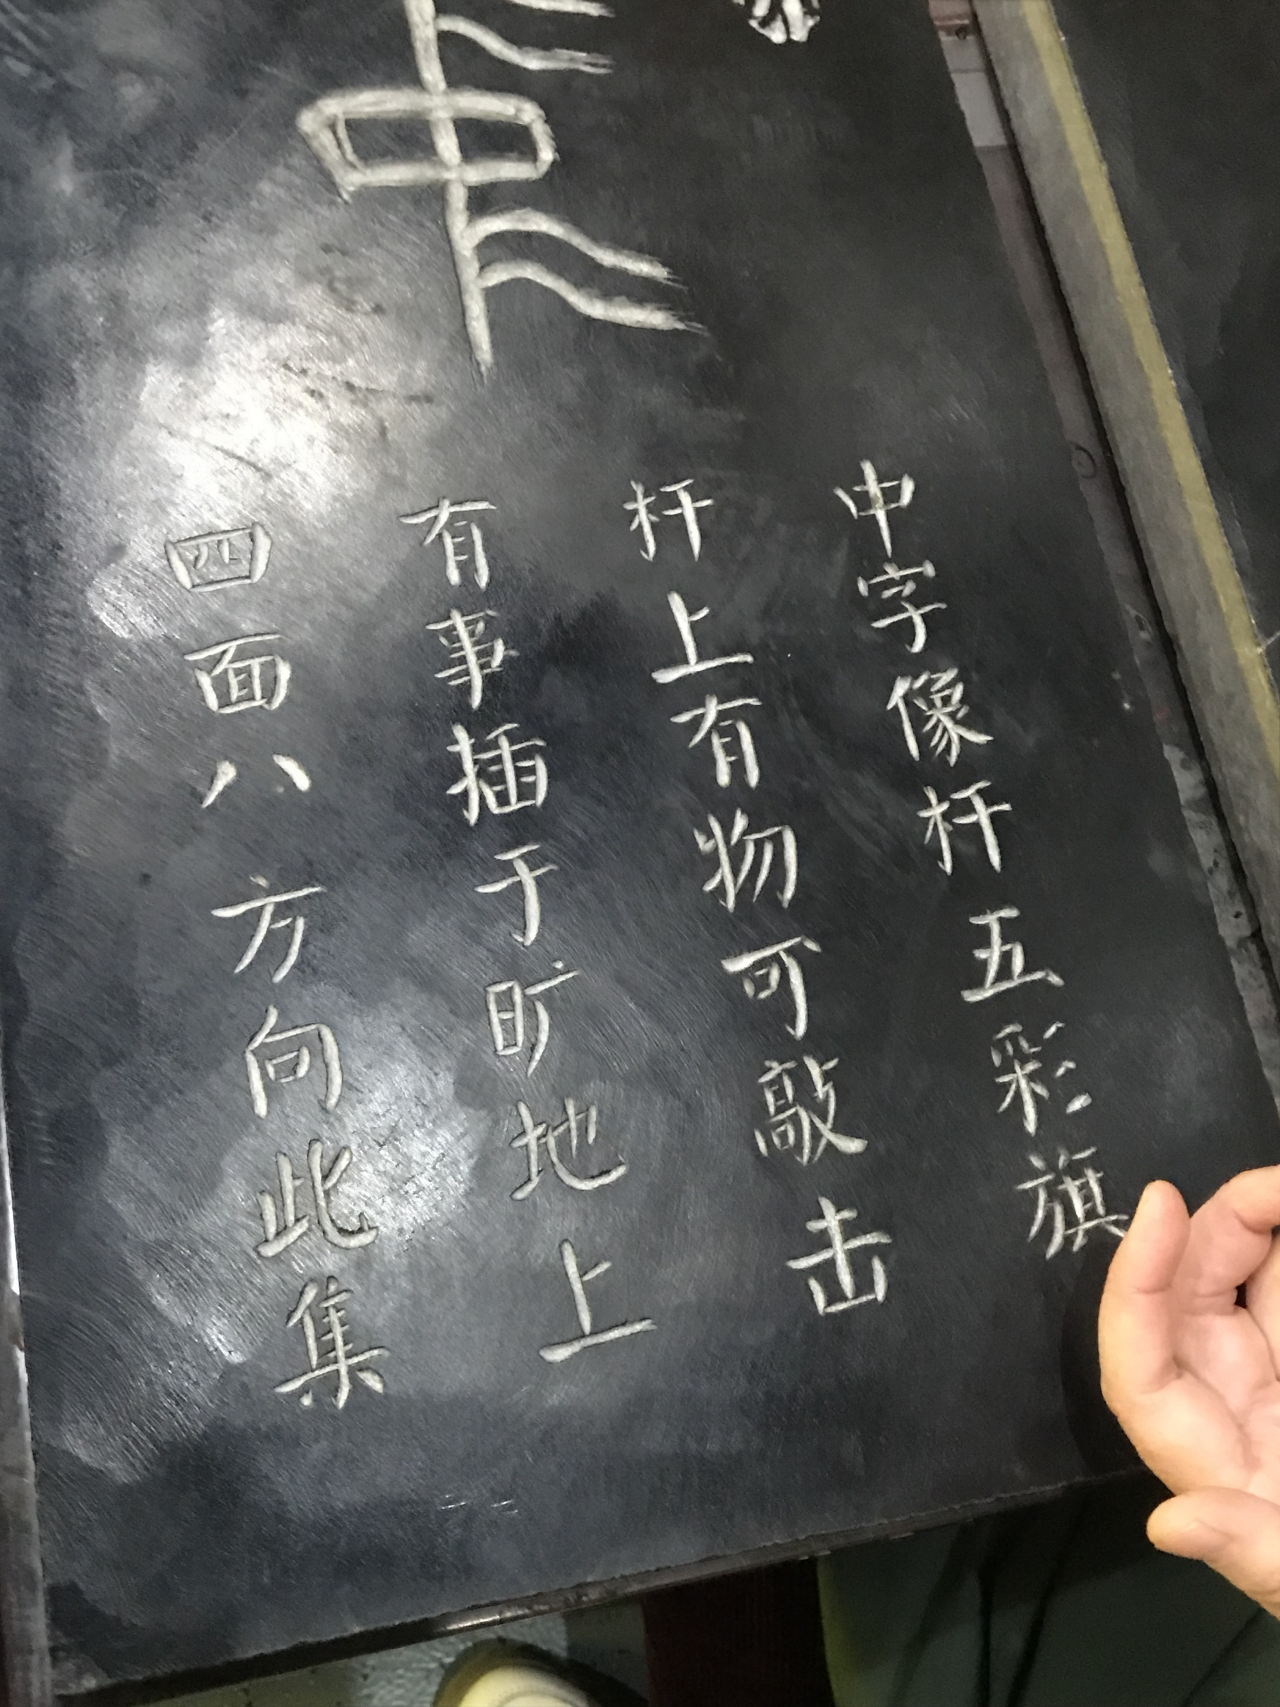 中字像杆五彩旗
杆上有物可敲击
有事插于旷地上
四面八方向此集